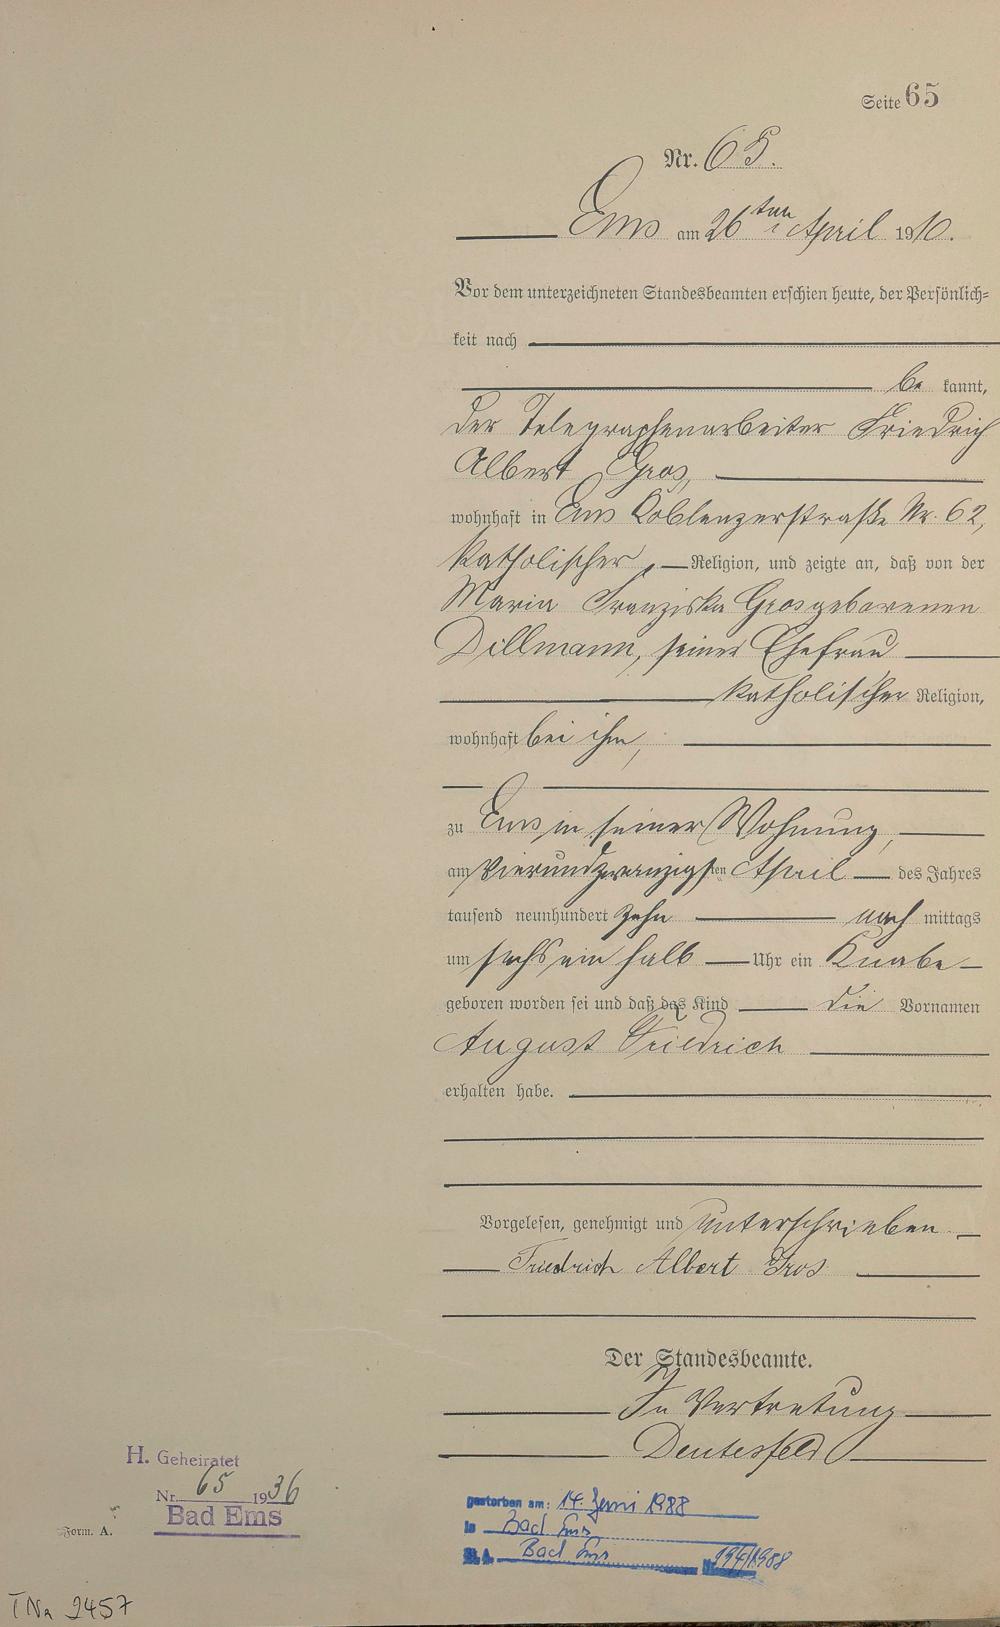 Seite 65
Nr. 65.
Ems am 26ten April 1910.
Vor dem unterzeichneten Standesbeamten erschien heute, der Persönlich-
keit nach
be kannt,
der Telegraphenarbeiter Friedrich
Albert Gros,
wohnhaft in Ems Coblenzerstraße Nr. 62,
katholischer Religion, und zeigte an, daß von der
Maria Franziska Gros geborenen
Dillmann, seiner Ehefrau
katholischer Religion,
wohnhaft bei ihm,
zu Ems in seiner Wohnung,
am vierundzwanzigsten April des Jahres
tausend neunhundert zehn nach mittags
um sechs ein halb Uhr ein Knabe
geboren worden sei und daß das Kind die Vornamen
August Friedrich
erhalten habe.
Vorgelesen, genehmigt und unterschrieben
Friedrich Albert Gros
Der Standesbeamte.
In Vertretung
Deutesfeld
H. Geheiratet
Nr. 65 1936
Bad Ems
Form. A.
gestorben am: 14. Juni 1988
in Bad Ems
St. A. Bad Ems Nr. 194/1988
TNr 2457